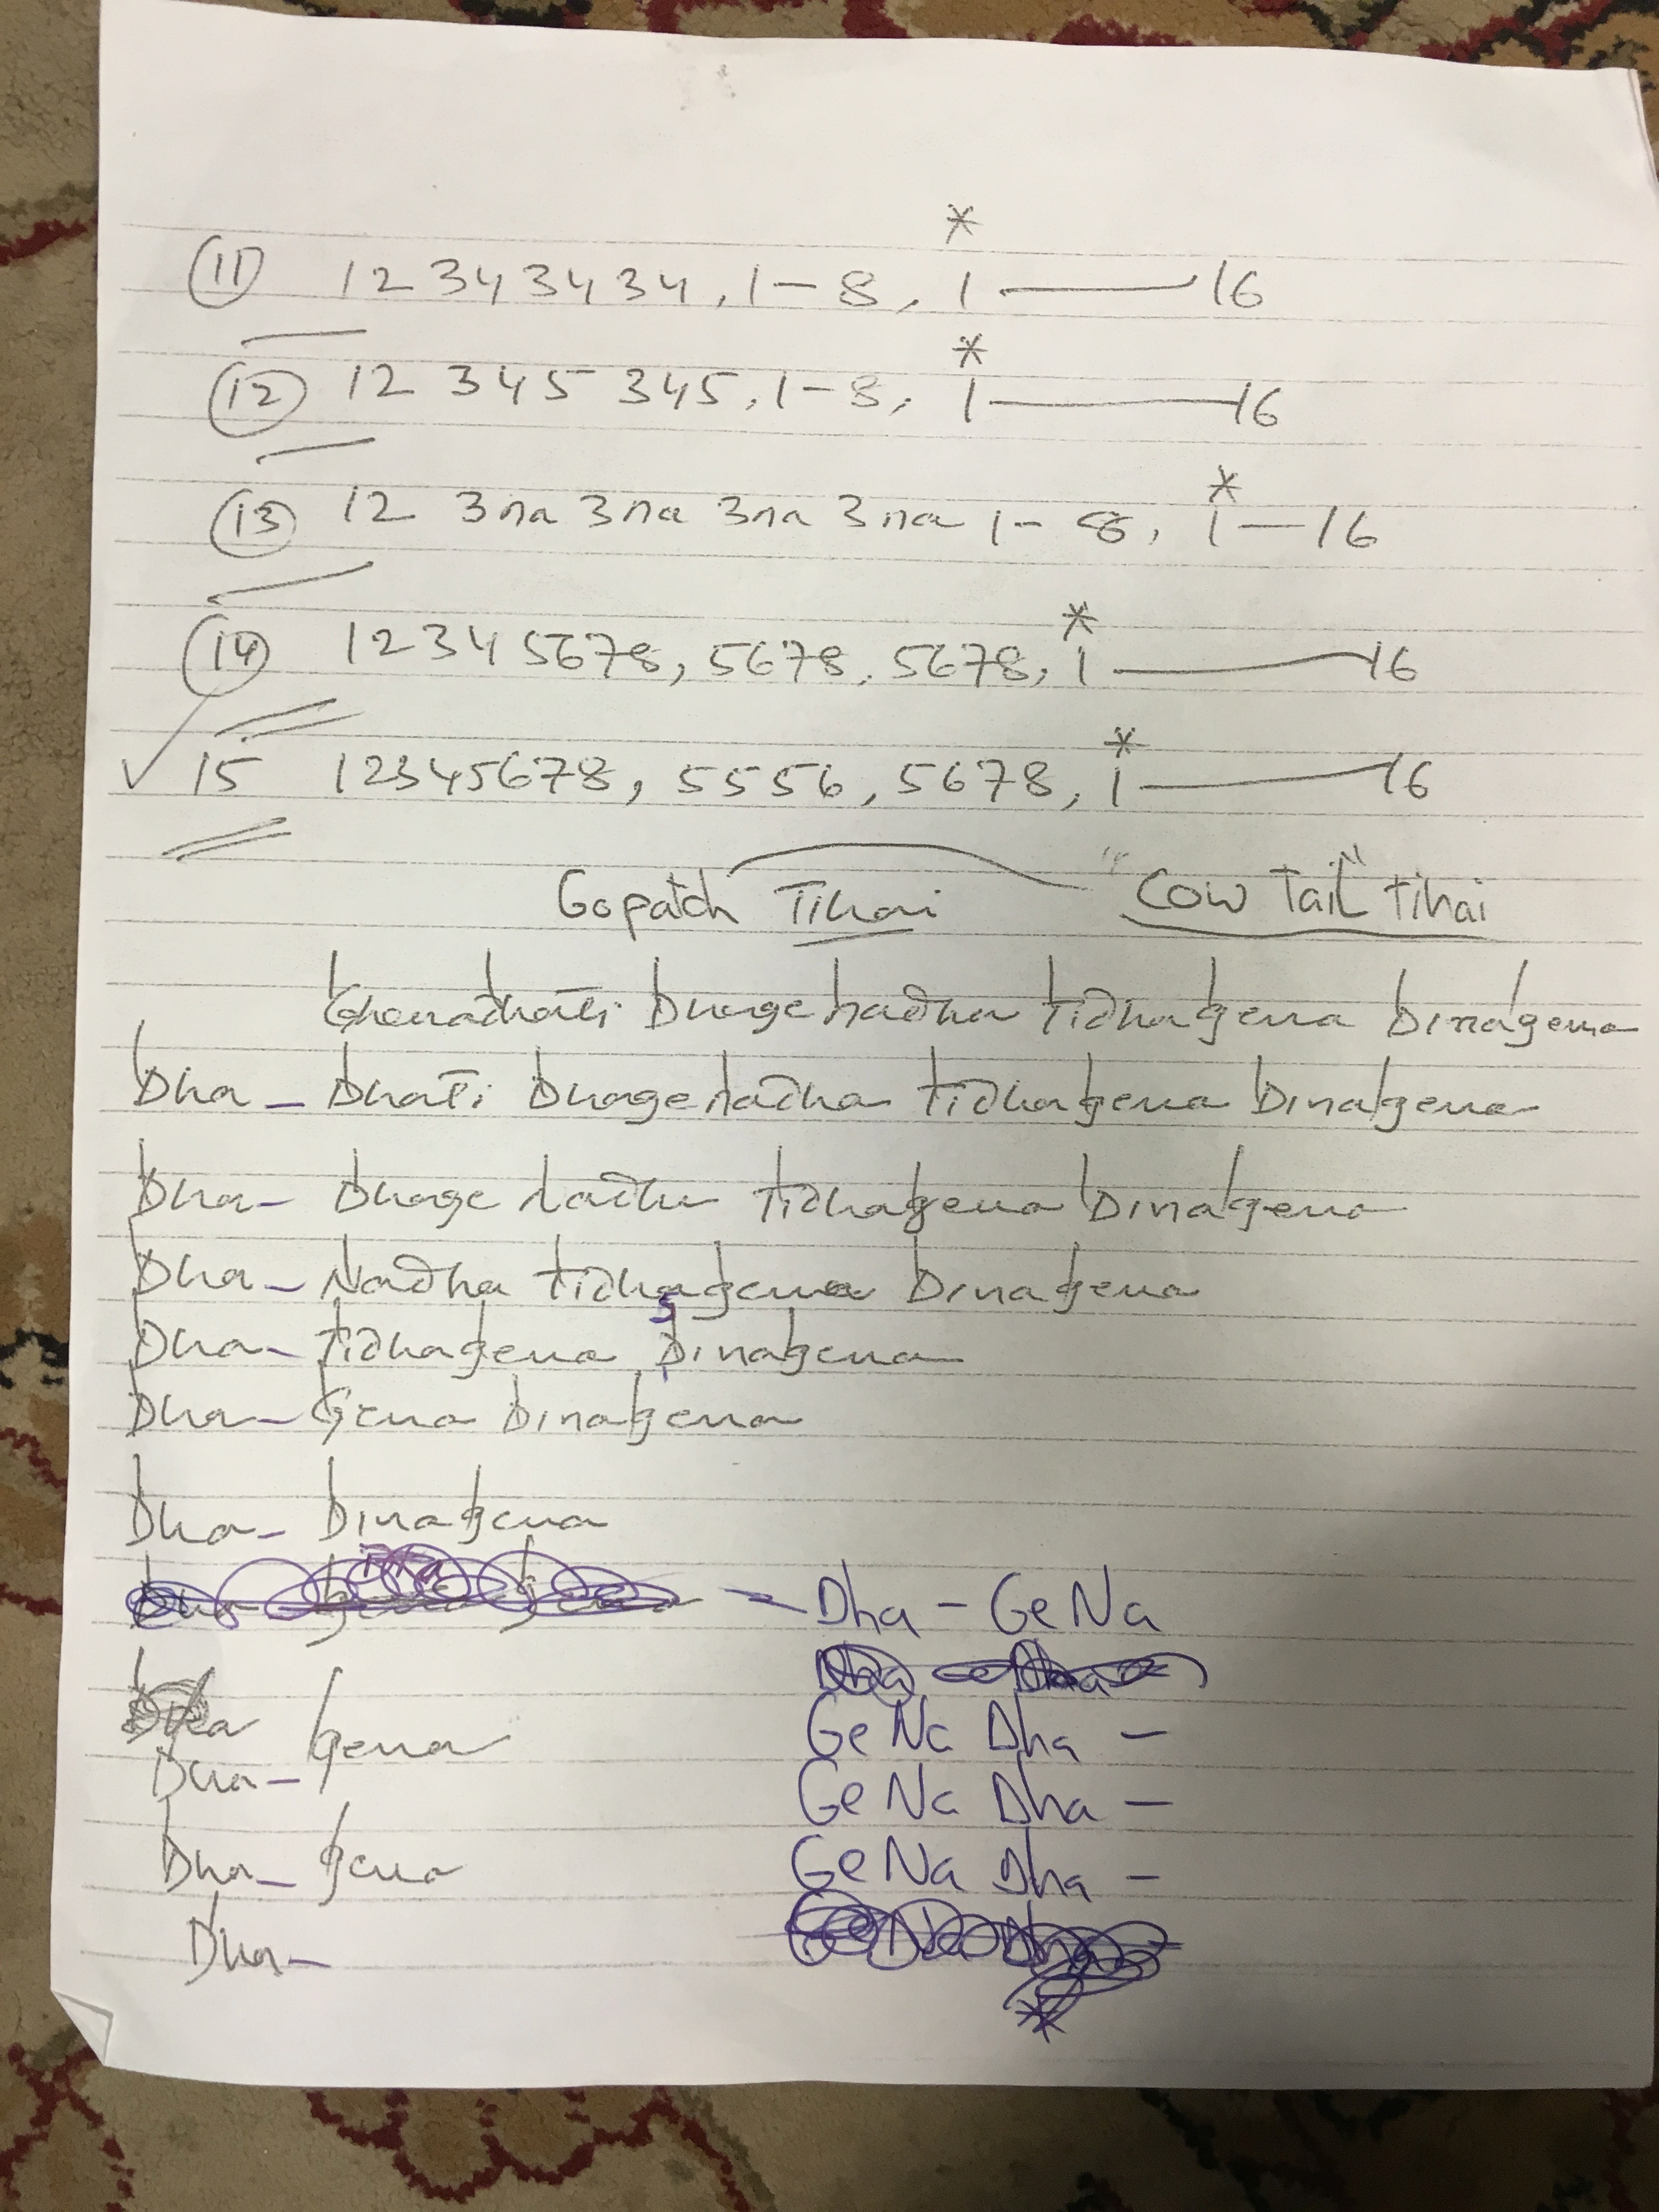 11 12 34 34 34, 1-8, 1——16
*
12 12 345 345, 1-8, 1——16
*
13 12 3na 3na 3na 3na 1-8, 1—16
*
14 1234 5678, 5678, 5678, 1——16
*
✓ 15 12345678, 5556, 5678, 1——16
*
Gopatch Tihai "Cow Tail" tihai
Ghenadhati Dhagenadha tidhagena Dinagena
Dha - Dhati Dhagenadha tidhagena Dinagena
Dha - Dhage nadha tidhagena Dinagena
Dha - Nadha tidhagena Dinagena
Dha - tidhagena Dinagena
Dha - Gena Dinagena
Dha - Dinagena
Dha - GeNa
Dha gena GeNa Dha -
Dha - GeNa Dha -
Dha - gena GeNa Dha -
Dha -
*